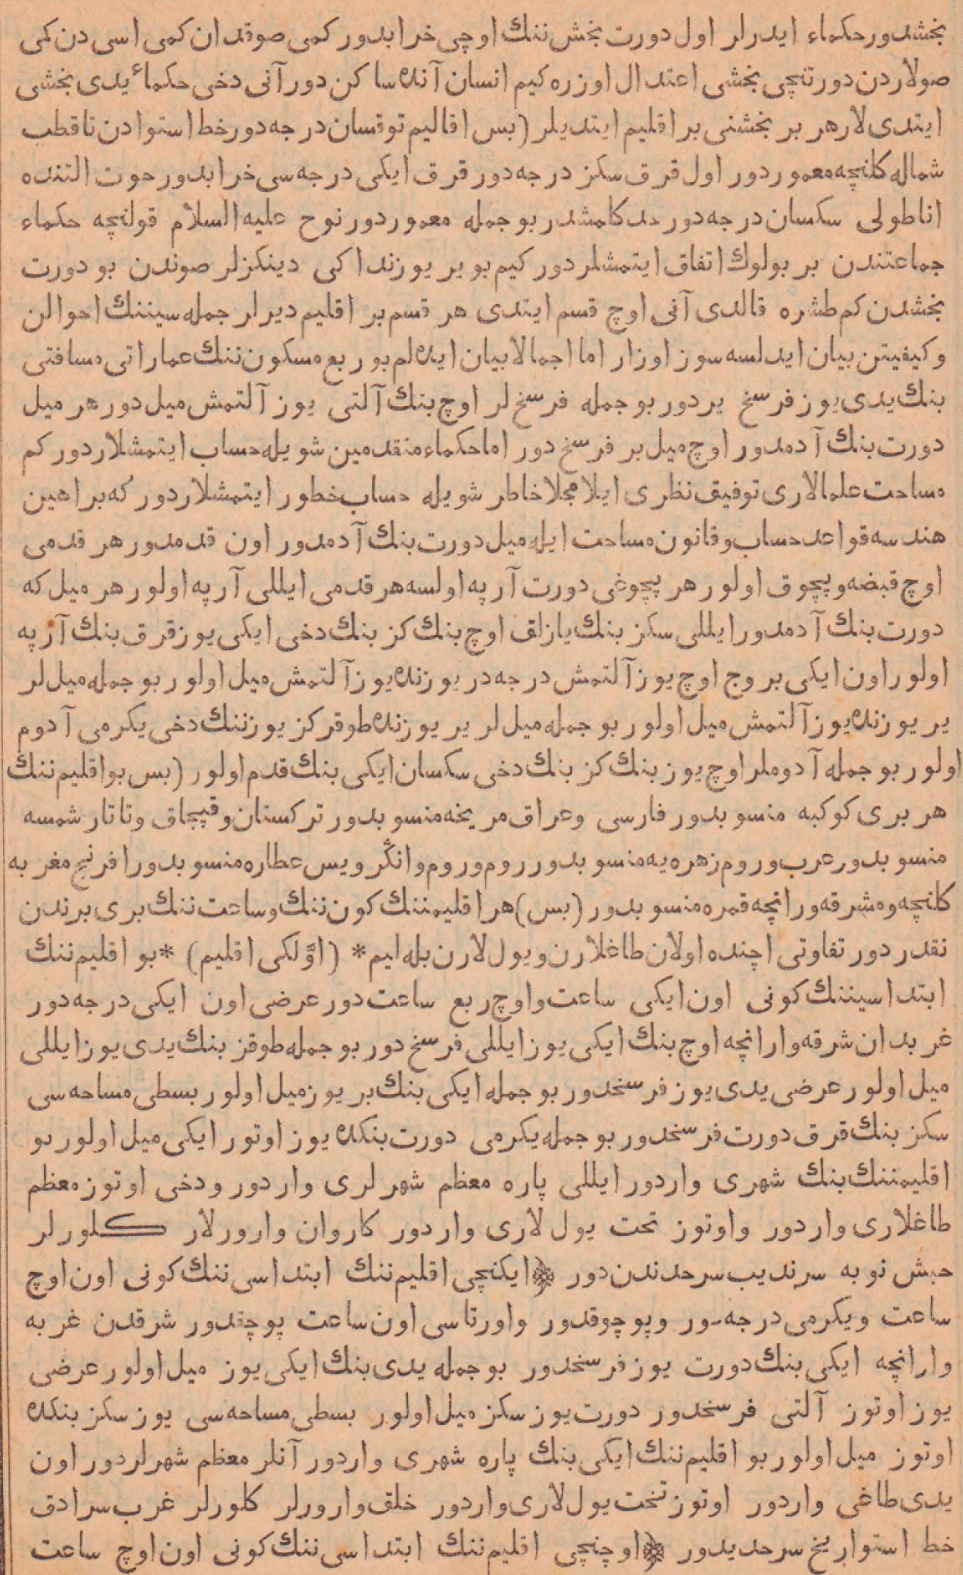 بخشدور حكماء ايدرلر اول دورت بخش ننك اوچی خرابدور كمی صوقدان كمی اسی دن كمی
صولاردن دورتنچی بخشی اعتدال اوزره كيم انسان آنده ساكن دور آنی دخی حكماء يدی بخشی
ايتدی لار هر بر بخشنی بر اقليم ايتديلر (بس اقاليم توقسان درجه دور خط استوادن تا قطب
شماله كلنچه معمور دور اول قرق سكز درجه دور قرق ايكی درجه سی خرابدور حوت التنده
اناطولی سكسان درجه دور حد كامشدر بو جمله معمور دور نوح عليه السلام قولنچه حكماء
جماعتندن بر بولوك اتفاق ايتمشلر دور كيم بو ير يوزنداكی دينكزلر صوندن بو دورت
بخشدن كم طشره قالدی آنی اوچ قسم ايتدی هر قسم بر اقليم ديرلر جمله سيننك احوالن
و كيفيتن بيان ايدلسه سوز اوزار اما اجمالا بيان ايده لم بو ربع مسكون ننك عماراتی مسافتی
بنك يدی يوز فرسخ ير دور بو جمله فرسخ لر اوچ بنك آلتی يوز آلتمش ميل دور هر ميل
دورت بنك آدمدور اوچ ميل بر فرسخ دور اما حكماء متقدمين شويله حساب ايتمشلار دور كم
مساحت علمالاری توفيق نظری ايلا مجلا خاطر شويله حساب خطور ايتمشلار دور كه براهين
هندسه قواعد حساب و قانون مساحت ايله ميل دورت بنك آدمدور اون قدمدور هر قدمی
اوچ قبضه و پچوق اولور هر پچوغی دورت آرپه اولسه هر قدمی ايللی آرپه اولور هر ميل كه
دورت بنك آدمدور ايللی سكز بنك يازلق اوچ بنك كز بنك دخی ايكی يوز قرق بنك آرپه
اولور اون ايكی بروج اوچ يوز آلتمش درجه در يوزنده يوز آلتمش ميل اولور بو جمله ميل لر
ير يوزنده يوز آلتمش ميل اولور بو جمله ميل لر ير يوزنده طوقز كز يوزننك دخی يكرمی آدوم
اولور بو جمله آدوملر اوچ يوز بنك كز بنك دخی سكسان ايكی بنك قدم اولور (بس بو اقليم ننك
هر بری كوكبه منسوبدور فارسی و عراق مريخه منسوبدور تركستان و قپچاق و تاتار شمسه
منسوبدور عرب و روم زهره يه منسوبدور روم و روم و انڭرويس عطاره منسوبدور افرنج مغربه
كلنچه و مشرقه ورانچه قمره منسوبدور (بس) هر اقليمننك كون ننك و ساعت ننك بری برندن
نقدر دور تفاوتی اچنده اولان طاغلارن و يول لارن بله ليم* (اوّلكی اقليم) *بو اقليم ننك
ابتداسيننك كونی اون ايكی ساعت و اوچ ربع ساعت دور عرضی اون ايكی درجه دور
غربدان شرقه وارانچه اوچ بنك ايكی يوز ايللی فرسخ دور بو جمله طوقز بنك يدی يوز ايللی
ميل اولور عرضی يدی يوز فرسخدور بو جمله ايكی بنك بر يوز ميل اولور بسطی مساحه سی
سكز بنك قرق دورت فرسخدور بو جمله يكرمی دورت بنكده يوز اوتور ايكی ميل اولور بو
اقليمننك بنك شهری واردور ايللی پاره معظم شهرلری واردور و دخی اوتوز معظم
طاغلاری واردور و اوتوز تحت يول لاری واردور كاروان وارورلار كلورلر
حبش نوبه سرنديب سرحدندن دور ۞ ايكنچی اقليم ننك ابتداسی ننك كونی اون اوچ
ساعت و يكرمی درجه ور و پوچوقدور و اورتاسی اون ساعت پوچقدور شرقدن غربه
وارانچه ايكی بنك دورت يوز فرسخدور بو جمله يدی بنك ايكی يوز ميل اولور عرضی
يوز اوتوز آلتی فرسخدور دورت يوز سكز ميل اولور بسطی مساحه سی يوز سكز بنكده
اوتوز ميل اولور بو اقليم ننك ايكی بنك پاره شهری واردور آنلر معظم شهرلردور اون
يدی طاغی واردور اوتوز تخت يول لاری واردور خلق وارورلر كلورلر غرب سرادق
خط استوا ريخ سرحديدور ۞ اوچنچی اقليم ننك ابتداسی ننك كونی اون اوچ ساعت